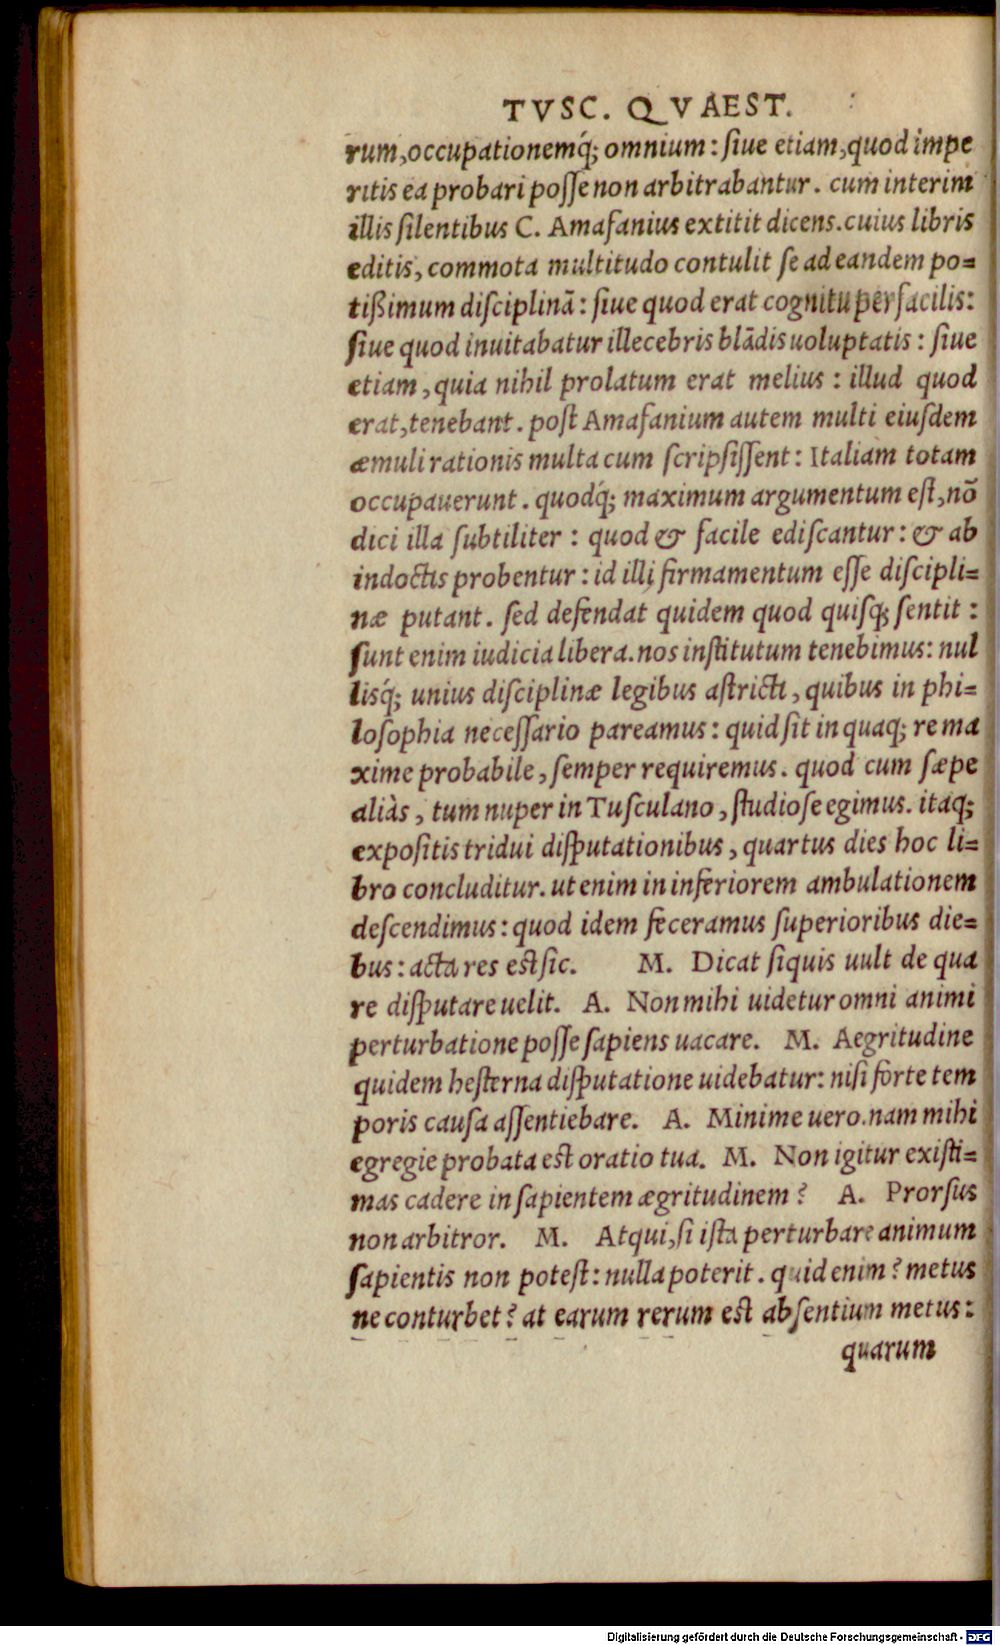 TVSC. QVAEST.
rum,occupationemq́; omnium: ſiue etiam,quod impe
ritis ea probari poſſe non arbitrabantur. cum interim
illis ſilentibus C. Amafanius extitit dicens.cuius libris
editis, commota multitudo contulit ſe ad eandem po=
tißimum diſciplinā: ſiue quod erat cognitu perfacilis:
ſiue quod inuitabatur illecebris blādis uoluptatis: ſiue
etiam, quia nihil prolatum erat melius: illud quod
erat,tenebant. poſt Amafanium autem multi eiuſdem
æmuli rationis multa cum ſcripſiſſent: Italiam totam
occupauerunt. quodq́; maximum argumentum eſt,nō
dici illa ſubtiliter: quod & facile ediſcantur: & ab
indoctis probentur: id illi firmamentum eſſe diſcipli=
næ putant. ſed defendat quidem quod quiſq; ſentit:
ſunt enim iudicia libera.nos inſtitutum tenebimus: nul
lisq́; unius diſciplinæ legibus aſtricti, quibus in phi=
loſophia neceſſario pareamus: quid ſit in quaq; re ma
xime probabile, ſemper requiremus. quod cum ſæpe
aliàs, tum nuper in Tuſculano, ſtudioſe egimus. itaq;
expoſitis tridui diſputationibus, quartus dies hoc li=
bro concluditur. ut enim in inferiorem ambulationem
deſcendimus: quod idem feceramus ſuperioribus die=
bus: acta res eſt ſic. M. Dicat ſiquis uult de qua
re diſputare uelit. A. Non mihi uidetur omni animi
perturbatione poſſe ſapiens uacare. M. Aegritudine
quidem heſterna diſputatione uidebatur: niſi forte tem
poris cauſa aſſentiebare. A. Minime uero.nam mihi
egregie probata eſt oratio tua. M. Non igitur exiſti=
mas cadere in ſapientem ægritudinem? A. Prorſus
non arbitror. M. Atqui,ſi iſta perturbare animum
ſapientis non poteſt: nulla poterit. quid enim? metus
ne conturbet? at earum rerum eſt abſentium metus:
quarum
Digitalisierung gefördert durch die Deutsche Forschungsgemeinschaft - DFG